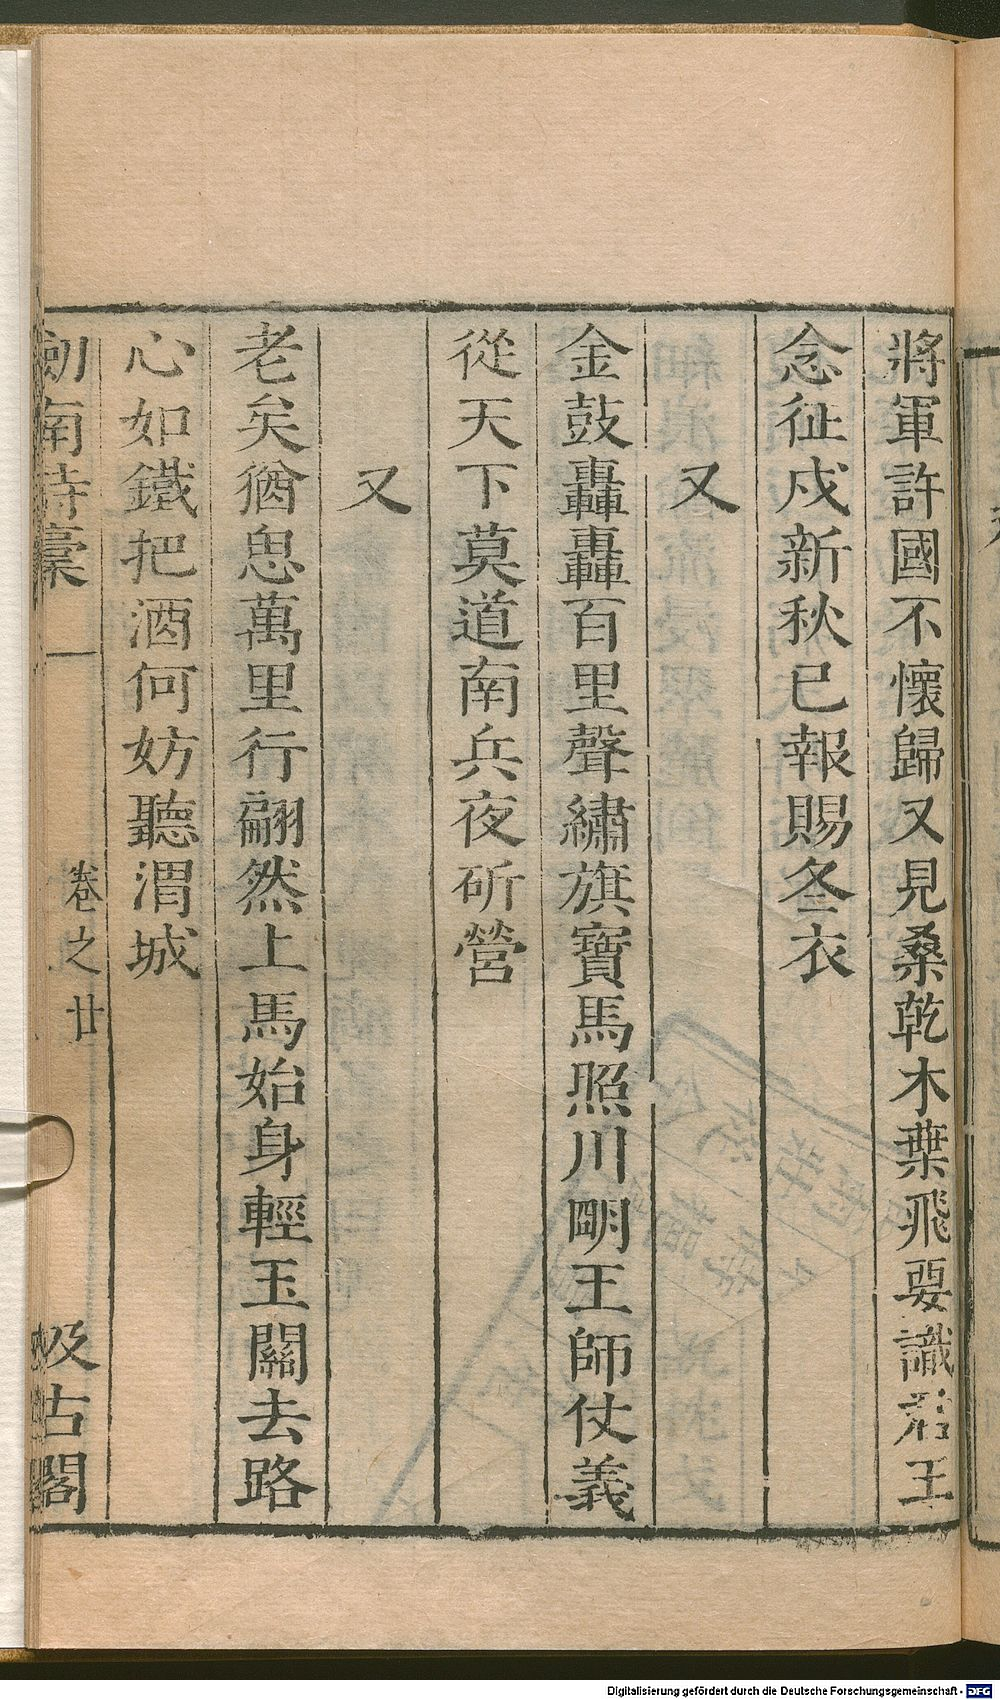 將軍許國不懷歸又見桑乾木葉飛要識君王
念征戍新秋已報賜冬衣
又
金鼓轟轟百里聲繡旗寶馬照川明王師仗義
從天下莫道南兵夜斫營
又
老矣猶思萬里行翩然上馬始身輕玉關去路
心如鐵把酒何妨聽渭城
劍南詩稾 卷之廿 汲古閣
Digitalisierung gefördert durch die Deutsche Forschungsgemeinschaft - DFG